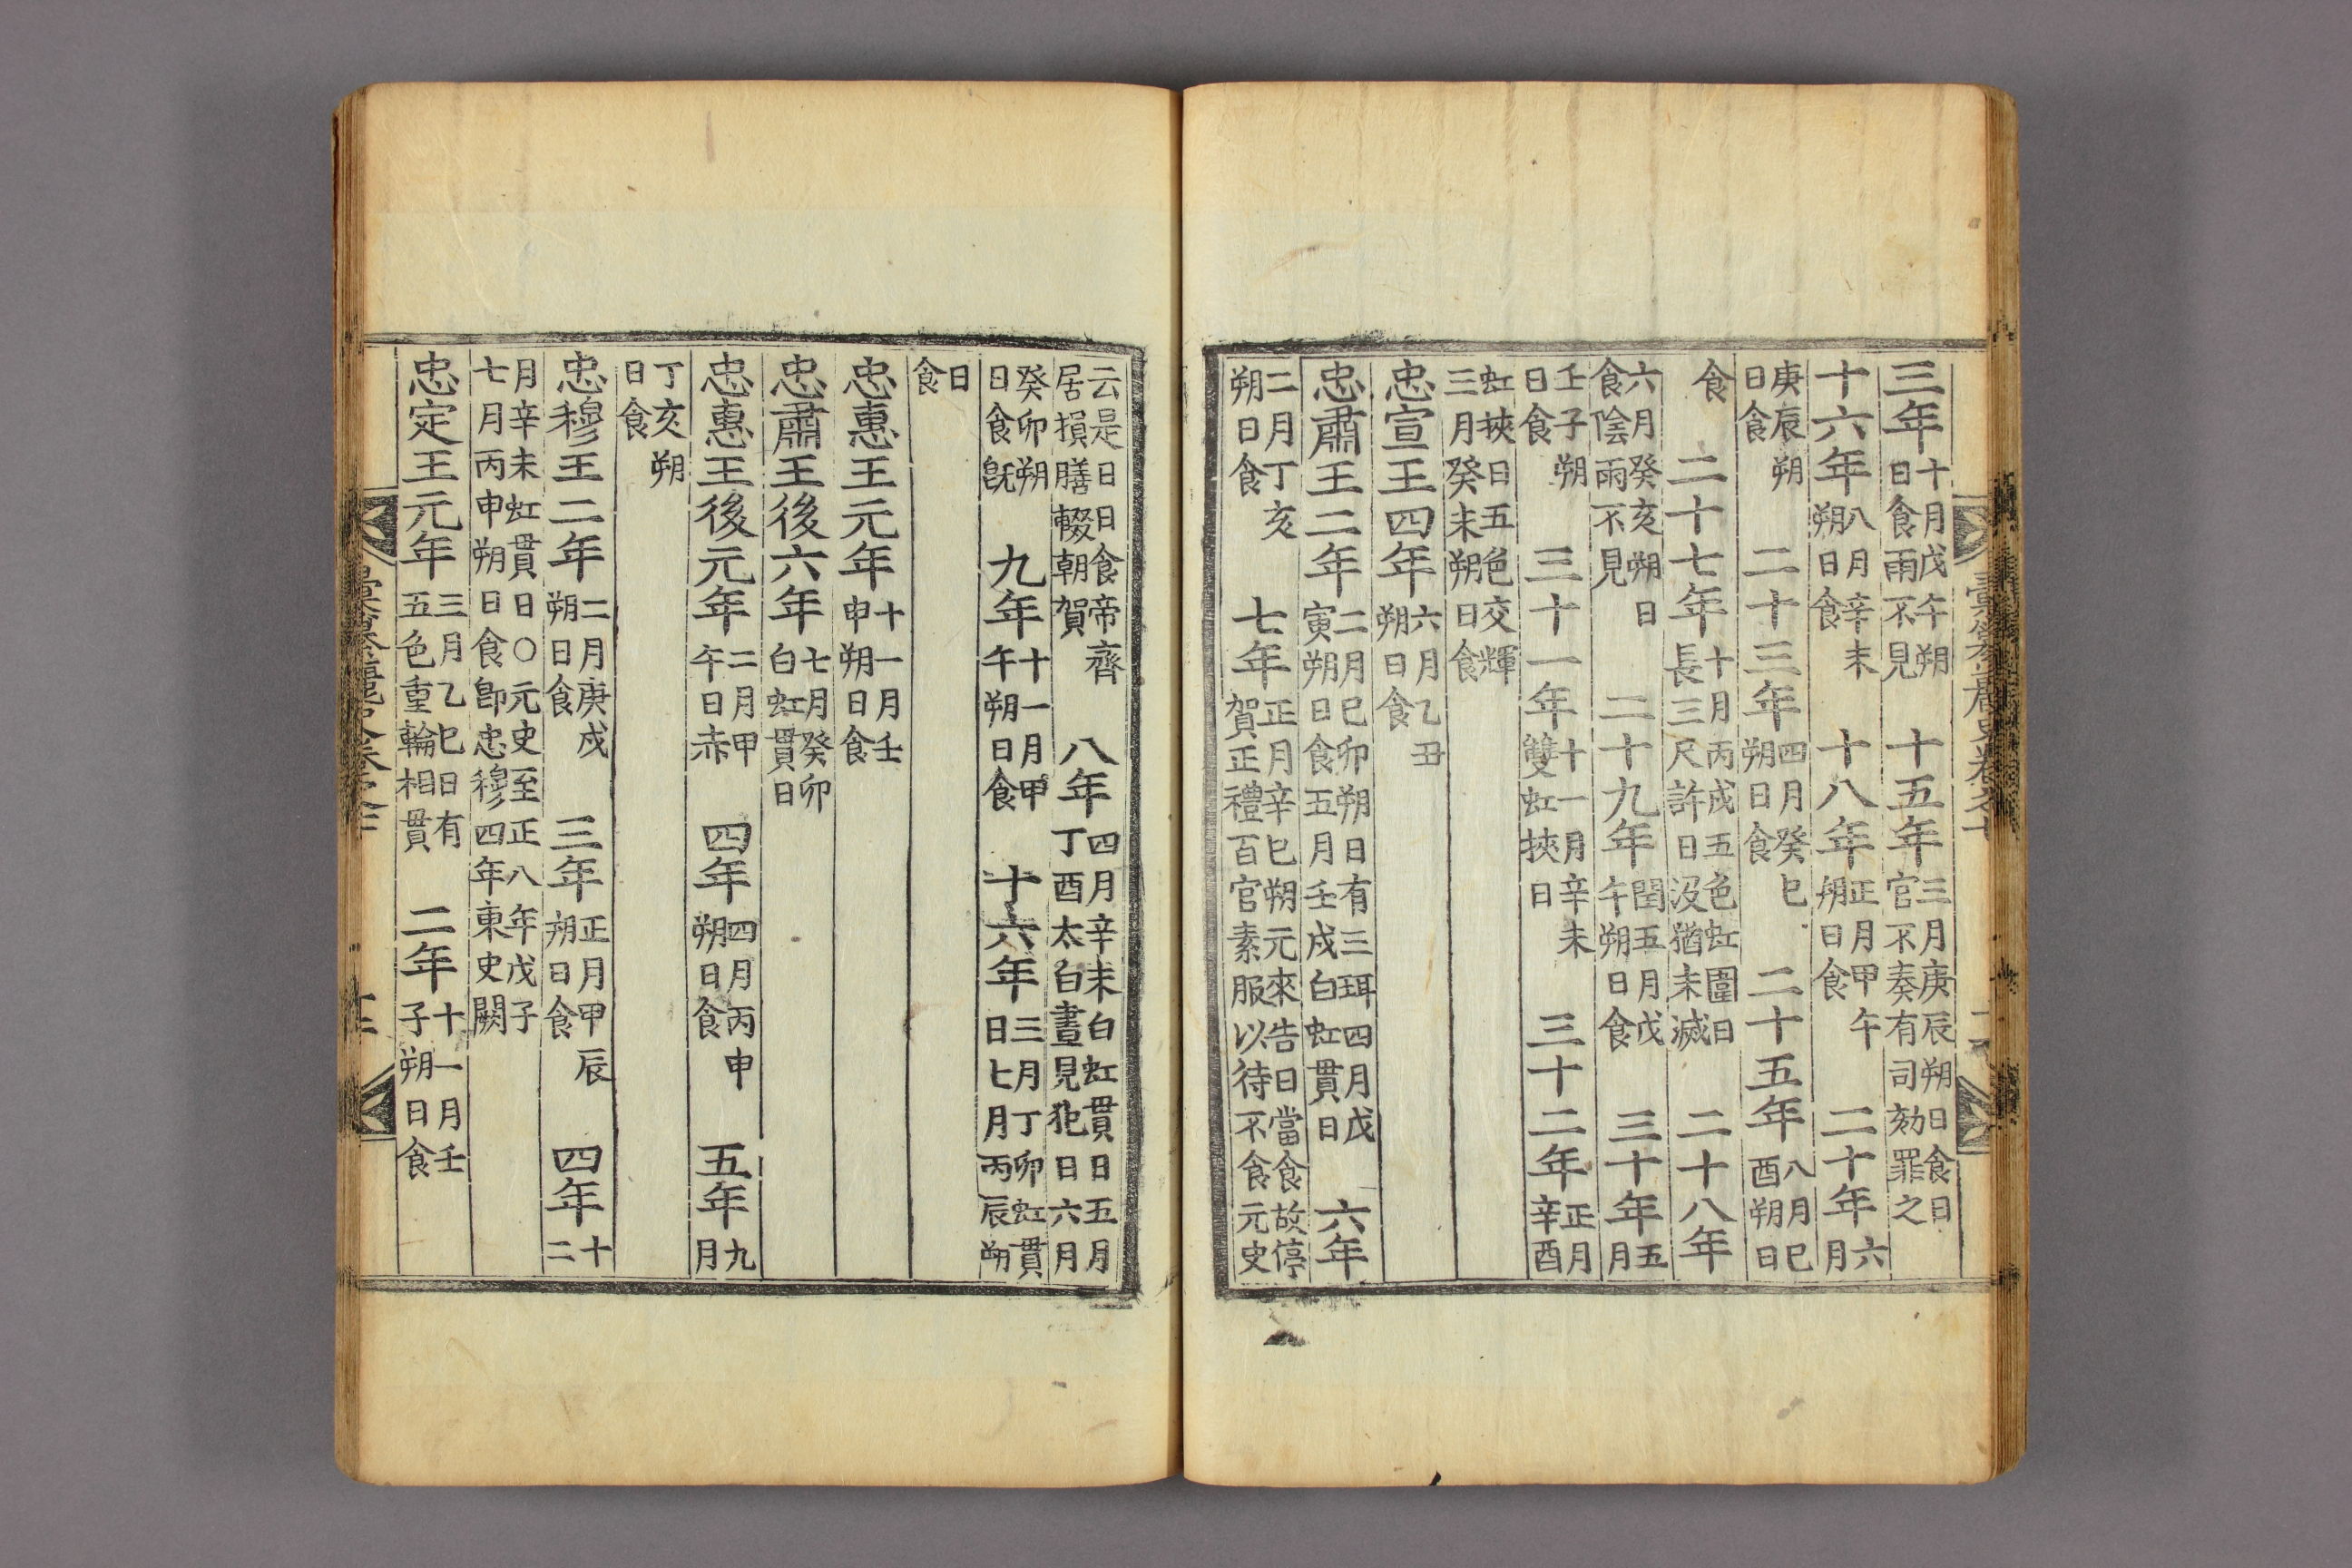 三年十月戊午朔日食雨不見 十五年三月庚辰朔日食日官不奏有司劾罪之
十六年八月辛未朔日食 十八年正月甲午朔日食 二十年六月
庚辰朔日食 二十三年四月癸巳朔日食 二十五年八月己酉朔日
食 二十七年十月丙戌五色虹圍日長三尺許日沒猶未滅 二十八年
六月癸亥朔日食陰雨不見 二十九年閏五月戊午朔日食 三十年五月
壬子朔日食 三十一年十一月辛未雙虹挾日 三十二年正月辛酉
虹挾日五色交輝三月癸未朔日食
忠宣王四年六月乙丑朔日食
忠肅王二年二月己卯朔日有三珥四月戊寅朔日食五月壬戌白虹貫日 六年
二月丁亥朔日食 七年正月辛巳朔元來告日當食故停賀正禮百官素服以待不食元史
云是日日食帝齊居損膳輟朝賀 八年四月辛未白虹貫日五月丁酉太白晝見犯日六月
癸卯朔日食旣 九年十一月甲午朔日食 十六年三月丁卯虹貫日七月丙辰朔
日食
忠惠王元年十一月壬申朔日食
忠肅王後六年七月癸卯白虹貫日
忠惠王後元年二月甲午日赤 四年四月丙申朔日食 五年九月
丁亥朔日食
忠穆王二年二月庚戌朔日食 三年正月甲辰朔日食 四年十二
月辛未虹貫日〇元史至正八年戊子七月丙申朔日食卽忠穆四年東史闕
忠定王元年三月乙巳日有五色重輪相貫 二年十一月壬子朔日食